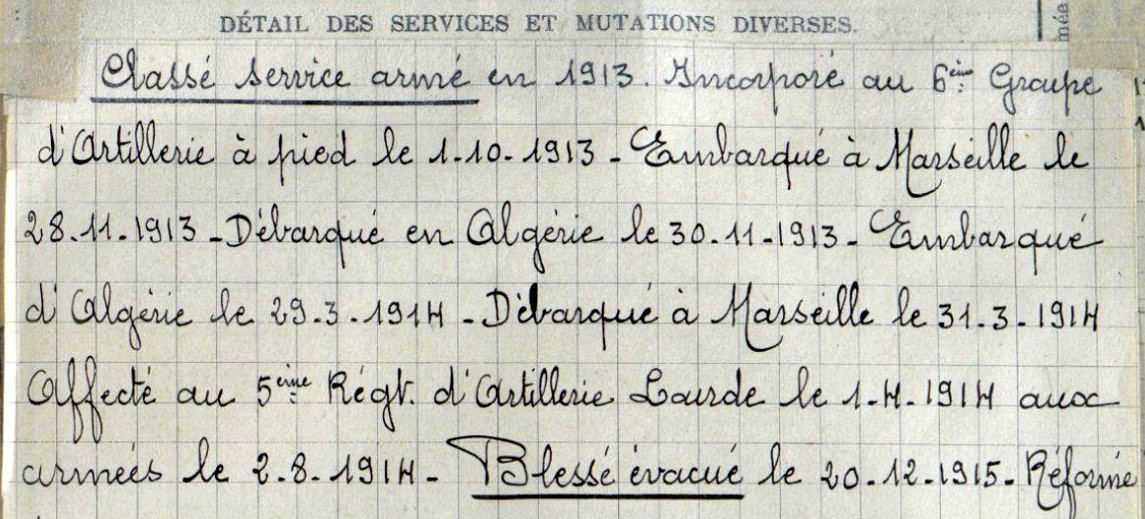 DÉTAIL DES SERVICES ET MUTATIONS DIVERSES.
Classé service armé en 1913. Incorporé au 6ème Groupe
d'Artillerie à pied le 1.10.1913 - Embarqué à Marseille le
28.11.1913 - Débarqué en Algérie le 30.11.1913 - Embarqué
d'Algérie le 29.3.1914 - Débarqué à Marseille le 31.3.1914
Affecté au 5ème Régt. d'Artillerie Lourde le 1.4.1914 aux
armées le 2.8.1914 - Blessé évacué le 20.12.1915 - Réformé